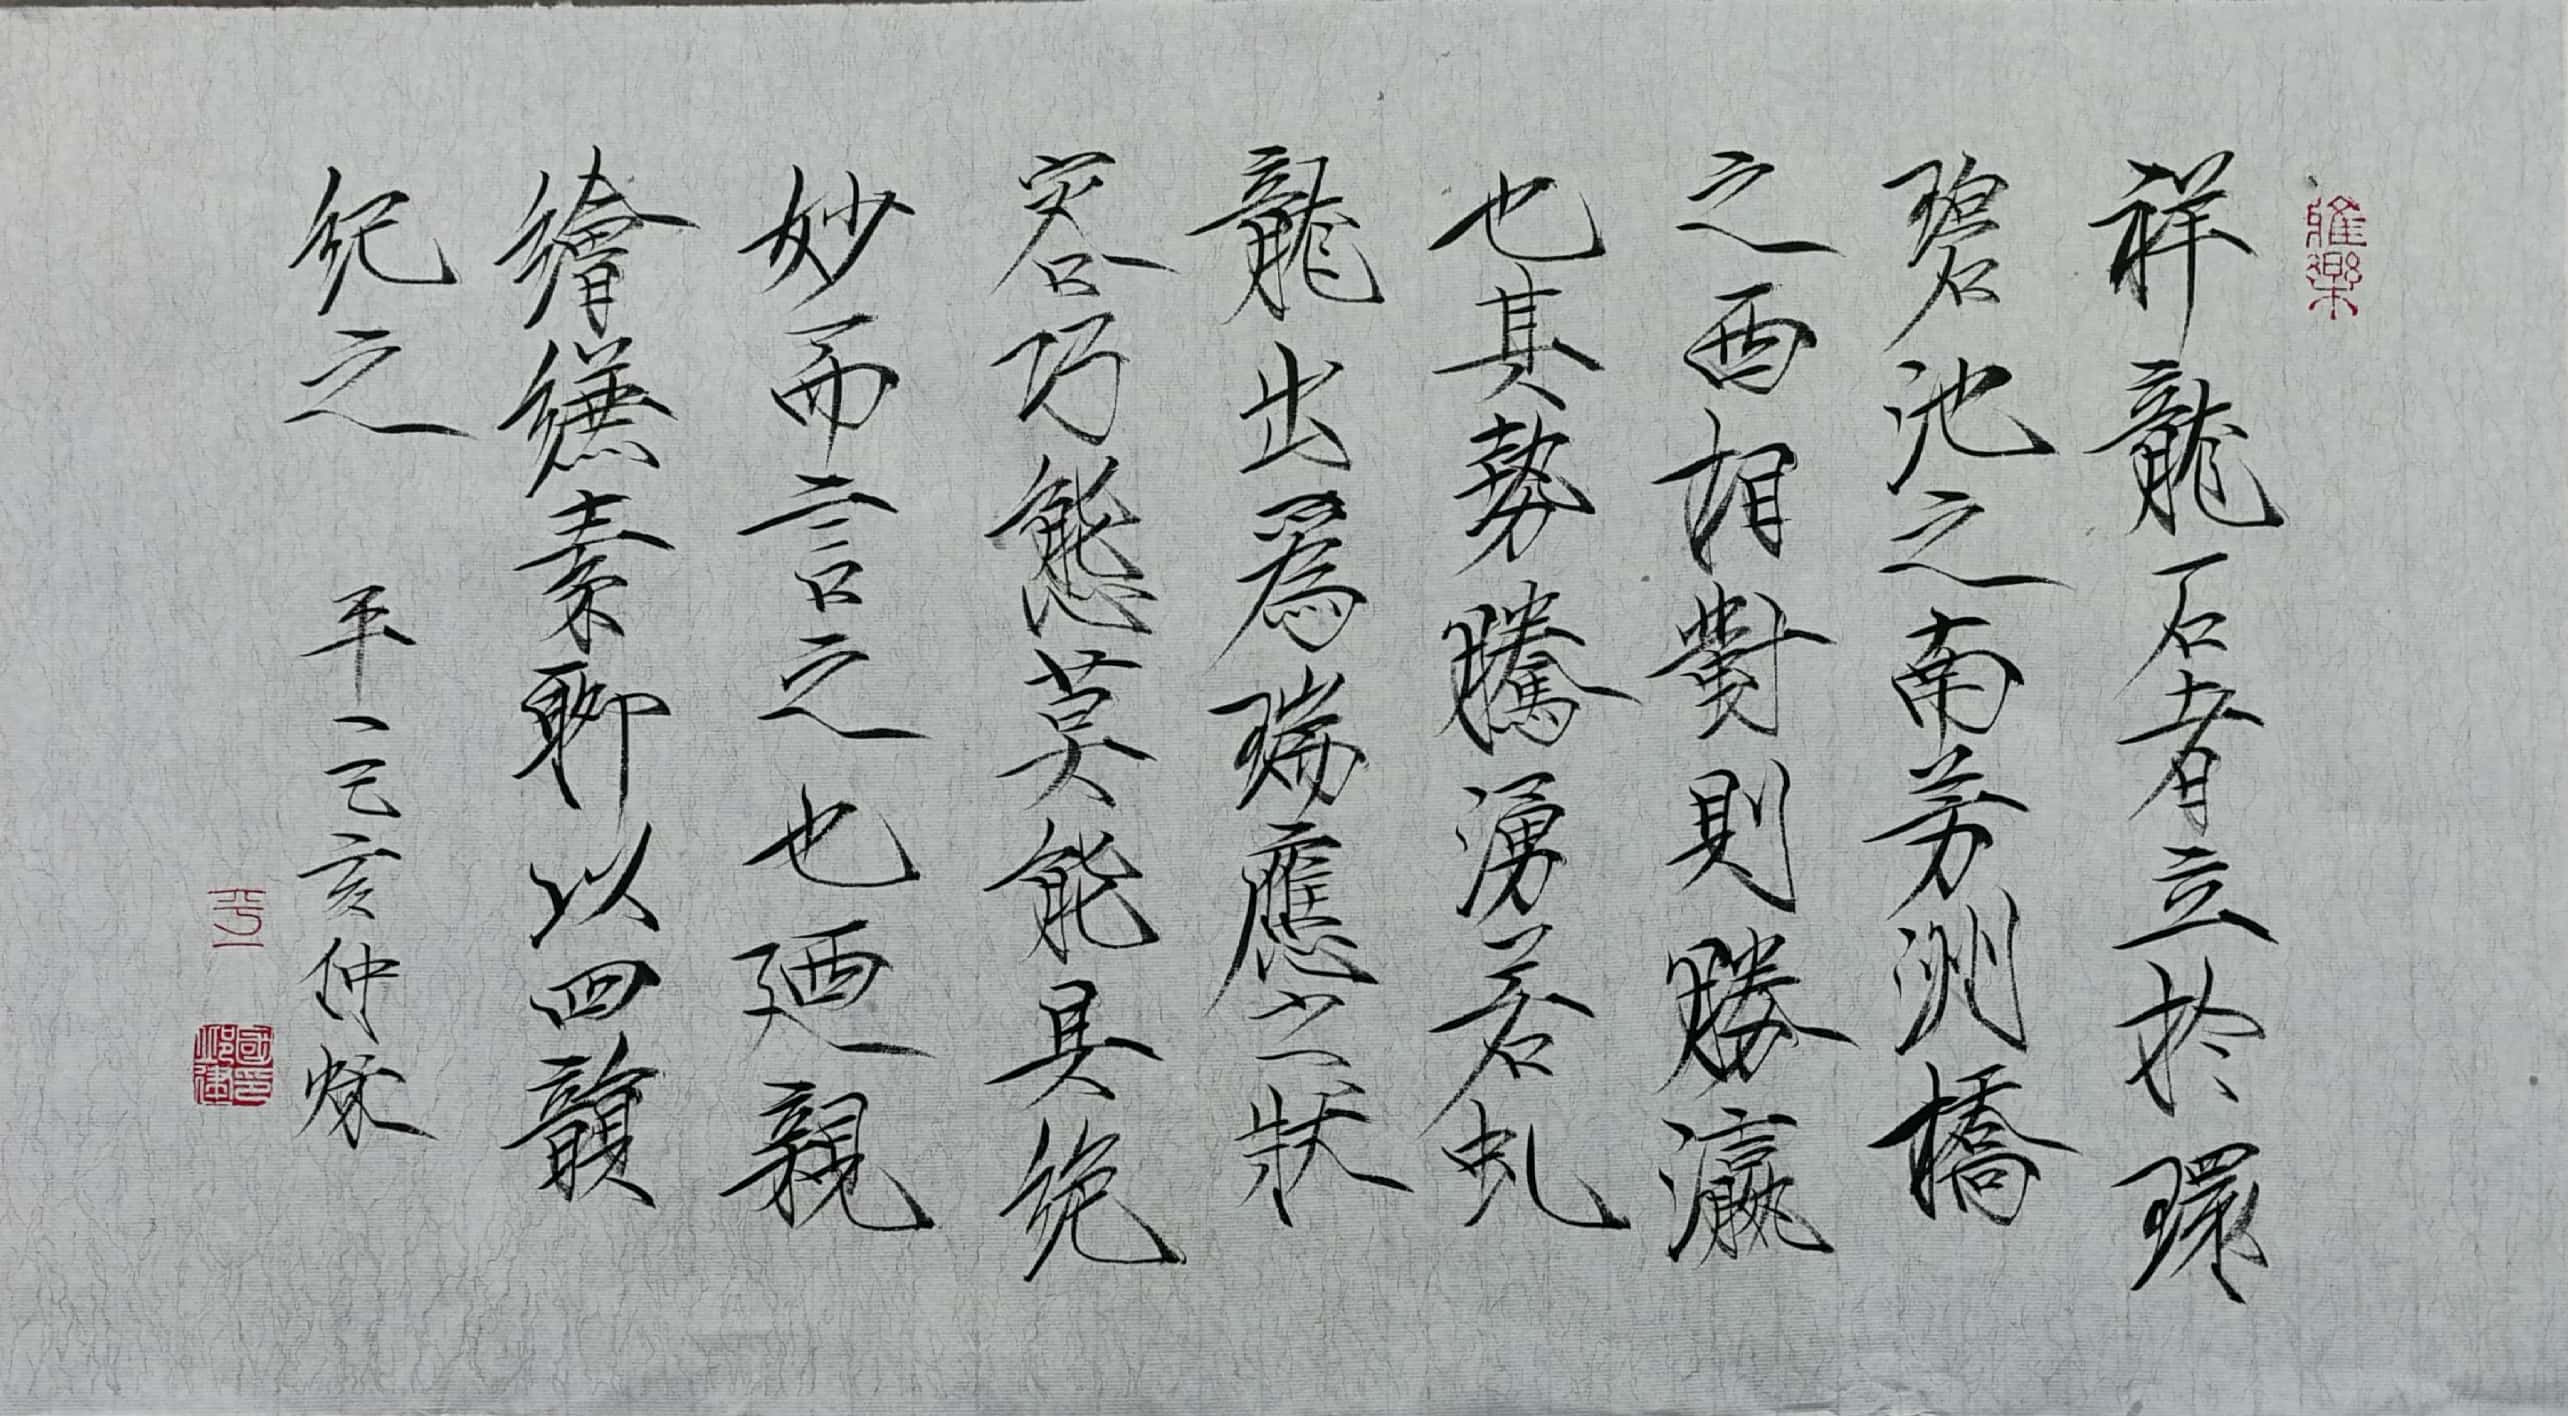 雅樂
祥龍石者立於環
碧池之南芳洲橋
之西相對則勝瀛
也其勢騰湧若虬
龍出爲瑞應之狀
容巧態莫能具絶
妙而言之也廼親
繪縑素聊以四韻
紀之 平一己亥仲秌
平一